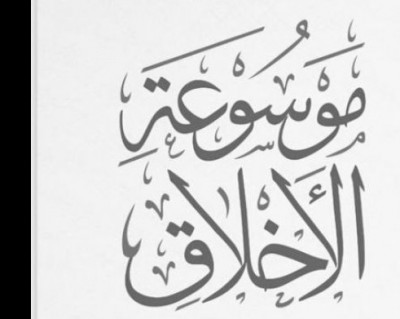 مَوْسُوعَةُ
الأَخْلَاقِ